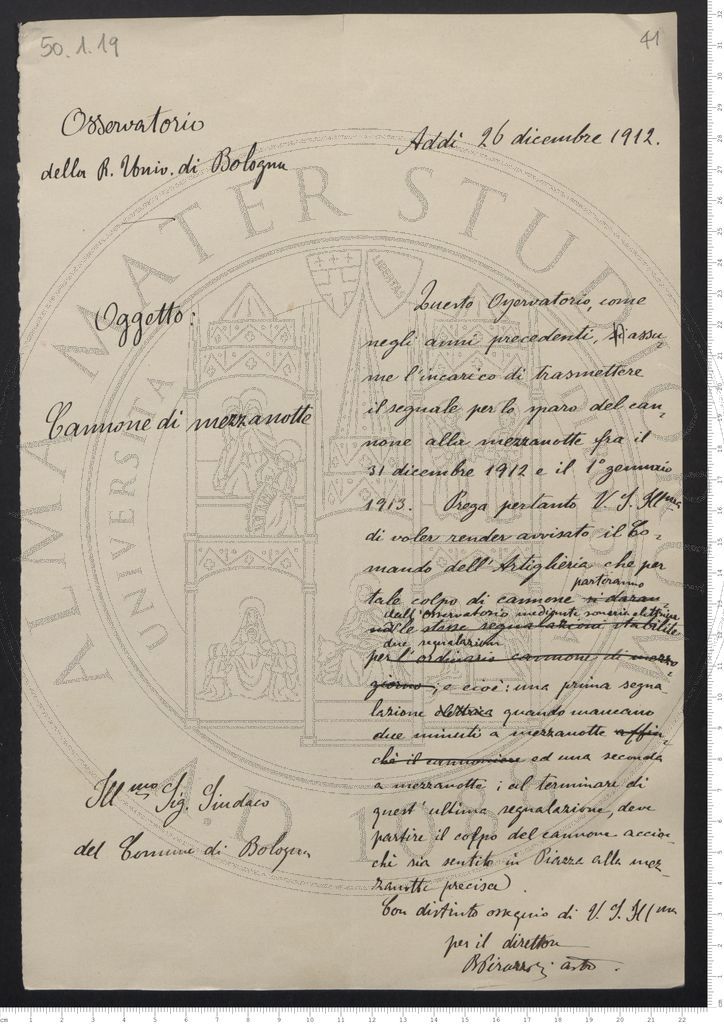 50.1.19
41
Osservatorio
della R. Univ. di Bologna
Addì 26 dicembre 1912.
Oggetto:
Cannone di mezzanotte
Questo Osservatorio, come
negli anni precedenti, si assu-
me l'incarico di trasmettere
il segnale per lo sparo del can-
none alla mezzanotte fra il
31 dicembre 1912 e il 1° gennaio
1913. Prega pertanto V. S. Ill.ma
di voler render avvisato il Co-
mando dell'Artiglieria che per
partoranno
tale colpo di cannone si daran
dall'Osservatorio mediante soneria elettrica
le stesse segnalazioni stabilite
due segnalazioni
per l'ordinario cannone di mezzo
giorno, e cioè: una prima segna
lazione elettrica quando mancano
due minuti a mezzanotte affin-
chè il cannoniere ed una seconda
a mezzanotte; al terminare di
quest'ultima segnalazione, deve
partire il colpo del cannone accio-
chè sia sentito in Piazza alla mez-
zanotte precisa.
Con distinto ossequio di V. S. Ill.ma
per il direttore
Ill.mo Sig. Sindaco
del Comune di Bologna
ALMA MATER STUDIORUM
UNIVERSITÀ
LIBERTAS
A.D. 1088
cm 1 2 3 4 5 6 7 8 9 10 11 12 13 14 15 16 17 18 19 20 21 22